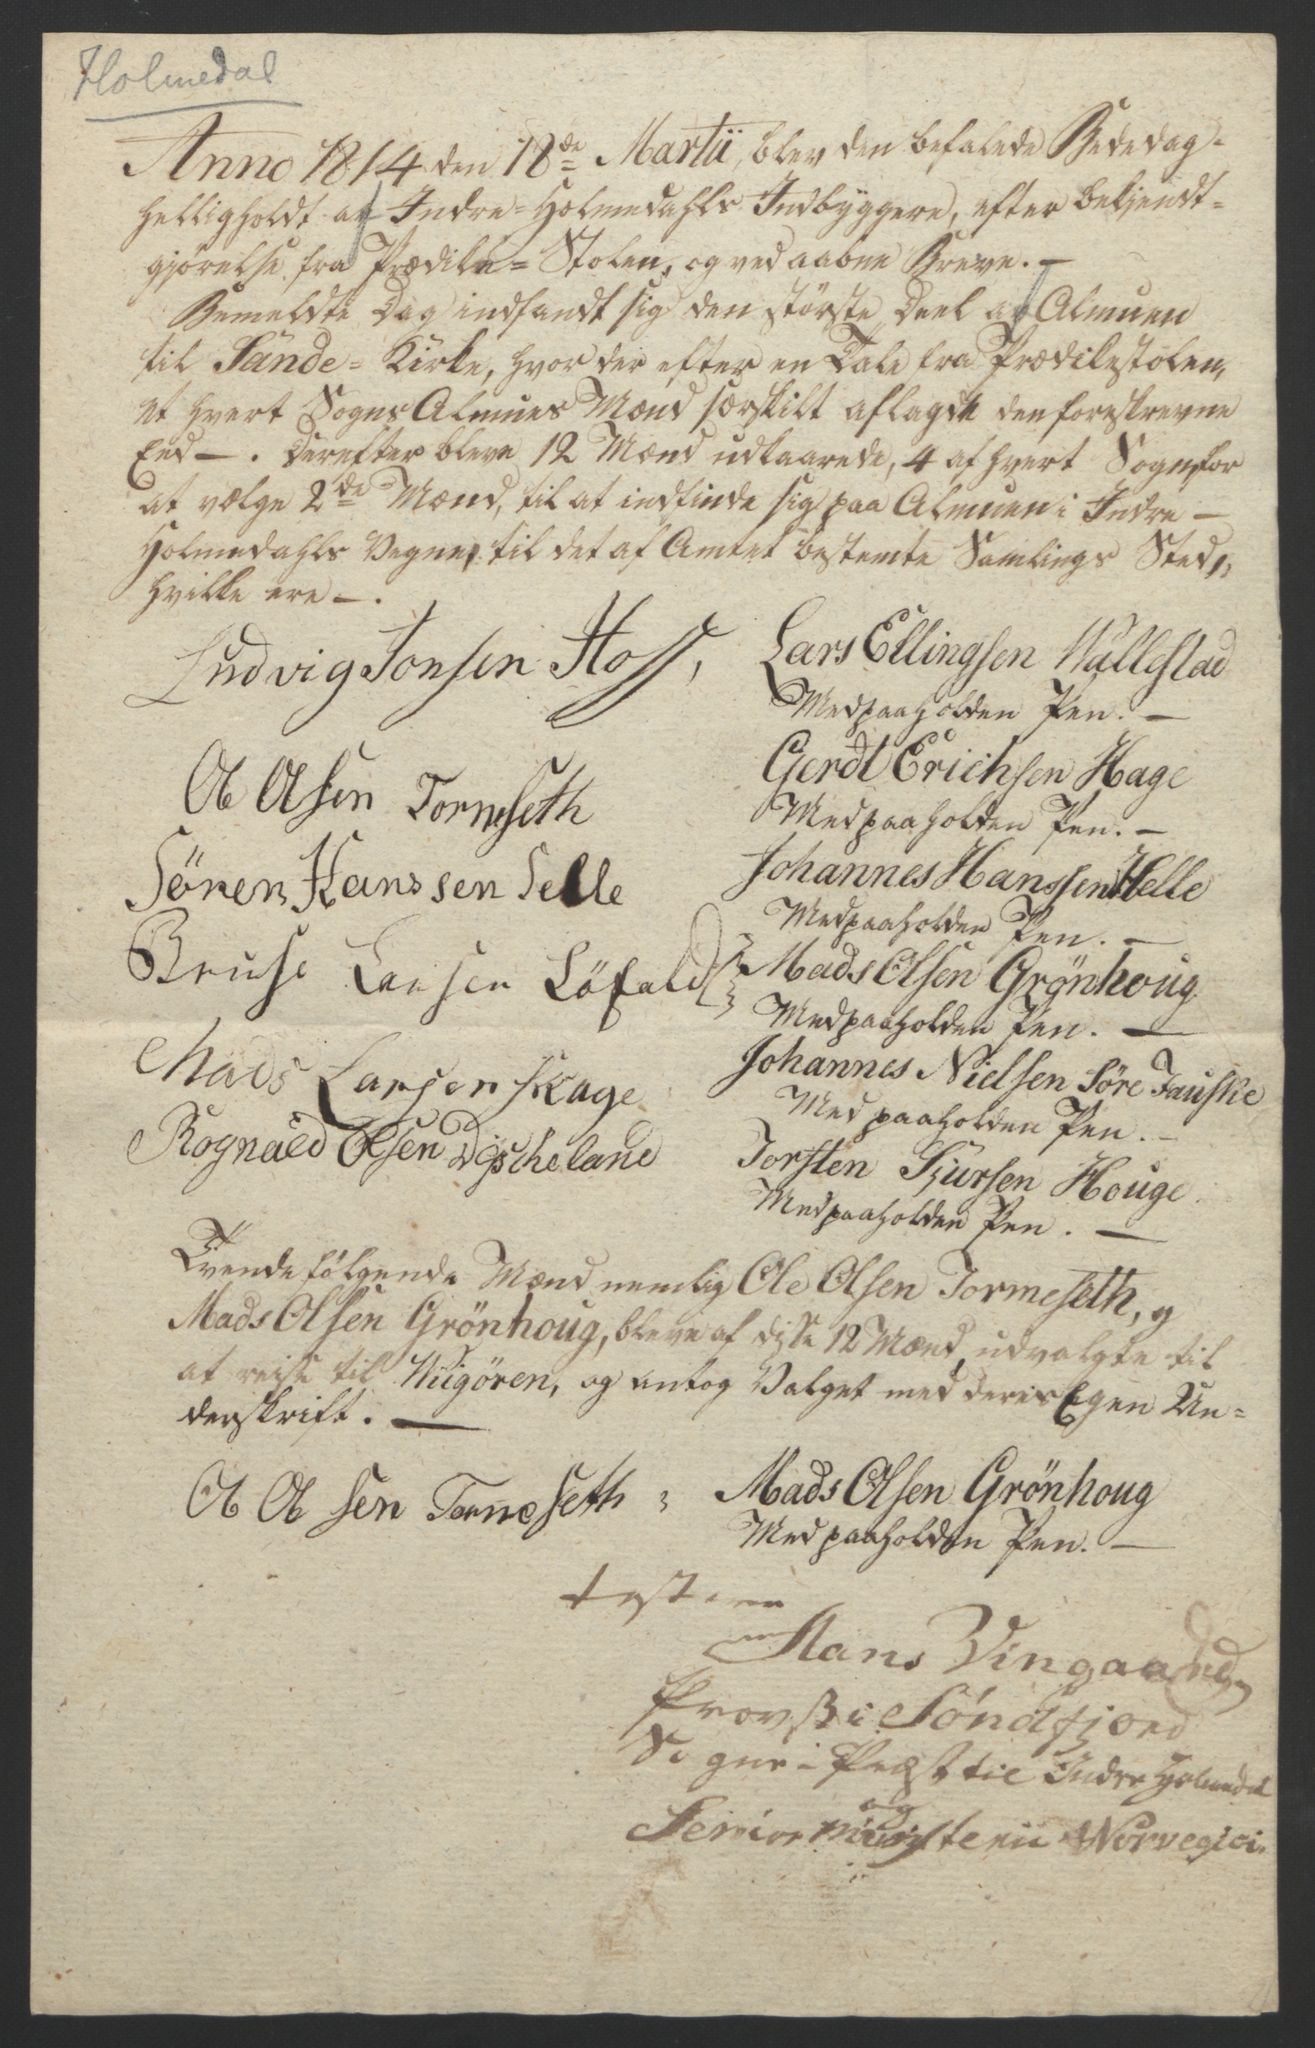 Holmedal
Anno 1814 den 18de Martii, blev den befalede Bededag-
helligholdt af Indre-Holmedahls Indbyggere, efter bekjendt-
gjörelse fra Prædike-Stolen, og ved aabne Breve. -
Bemeldte Dag indfandt sig den störste Deel af Almuen
til Sande-Kirke, hvor der efter en Tale fra Prædikestolen,
et hvert Sogns Almues Mænd særskilt aflagde den foreskrevne
Eed -. Derefter bleve 12 Mænd udkaarede, 4 af hvert Sogn, for
at vælge 2de Mænd, til at indfinde sig paa Almuen i Indre-
Holmedahls Vegne, til det af Amtet bestemte Samlings Sted,
hvilke ere -.
Ludvig Jonsen Hoff,
Ol Olsen Tormeseth
Sören Hanssen Selle
Bruse Larsen Löfald
Mads Larsen Hage
Rognald Olsen Dijscheland
Lars Ellingsen Wallestad
Med paaholden Pen. -
Gerdt Erichsen Hage
Med paaholden Pen. -
Johannes Hanssen Helle
Med paaholden Pen. -
Mads Olsen Grönhoug
Med paaholden Pen. -
Johannes Nielsen Söre Fauske
Med paaholden Pen. -
Torsten Siursen Houge
Med paaholden Pen. -
Tvende fölgende Mænd nemlig Ole Olsen Tormeseth, og
Mads Olsen Grönhoug, bleve af disse 12 Mænd, udvalgte til
at reise til Wiigören, og antog Valget med deres Egen Un-
derskrift. -
Ol Olsen Tormeseth
Mads Olsen Grönhoug
Med paaholden Pen. -
testerer
Hans Vingaard
Provst i Söndfjord
Sogne-Præst til Indre Holmedal
og
Senior Ministerii Norvegici.